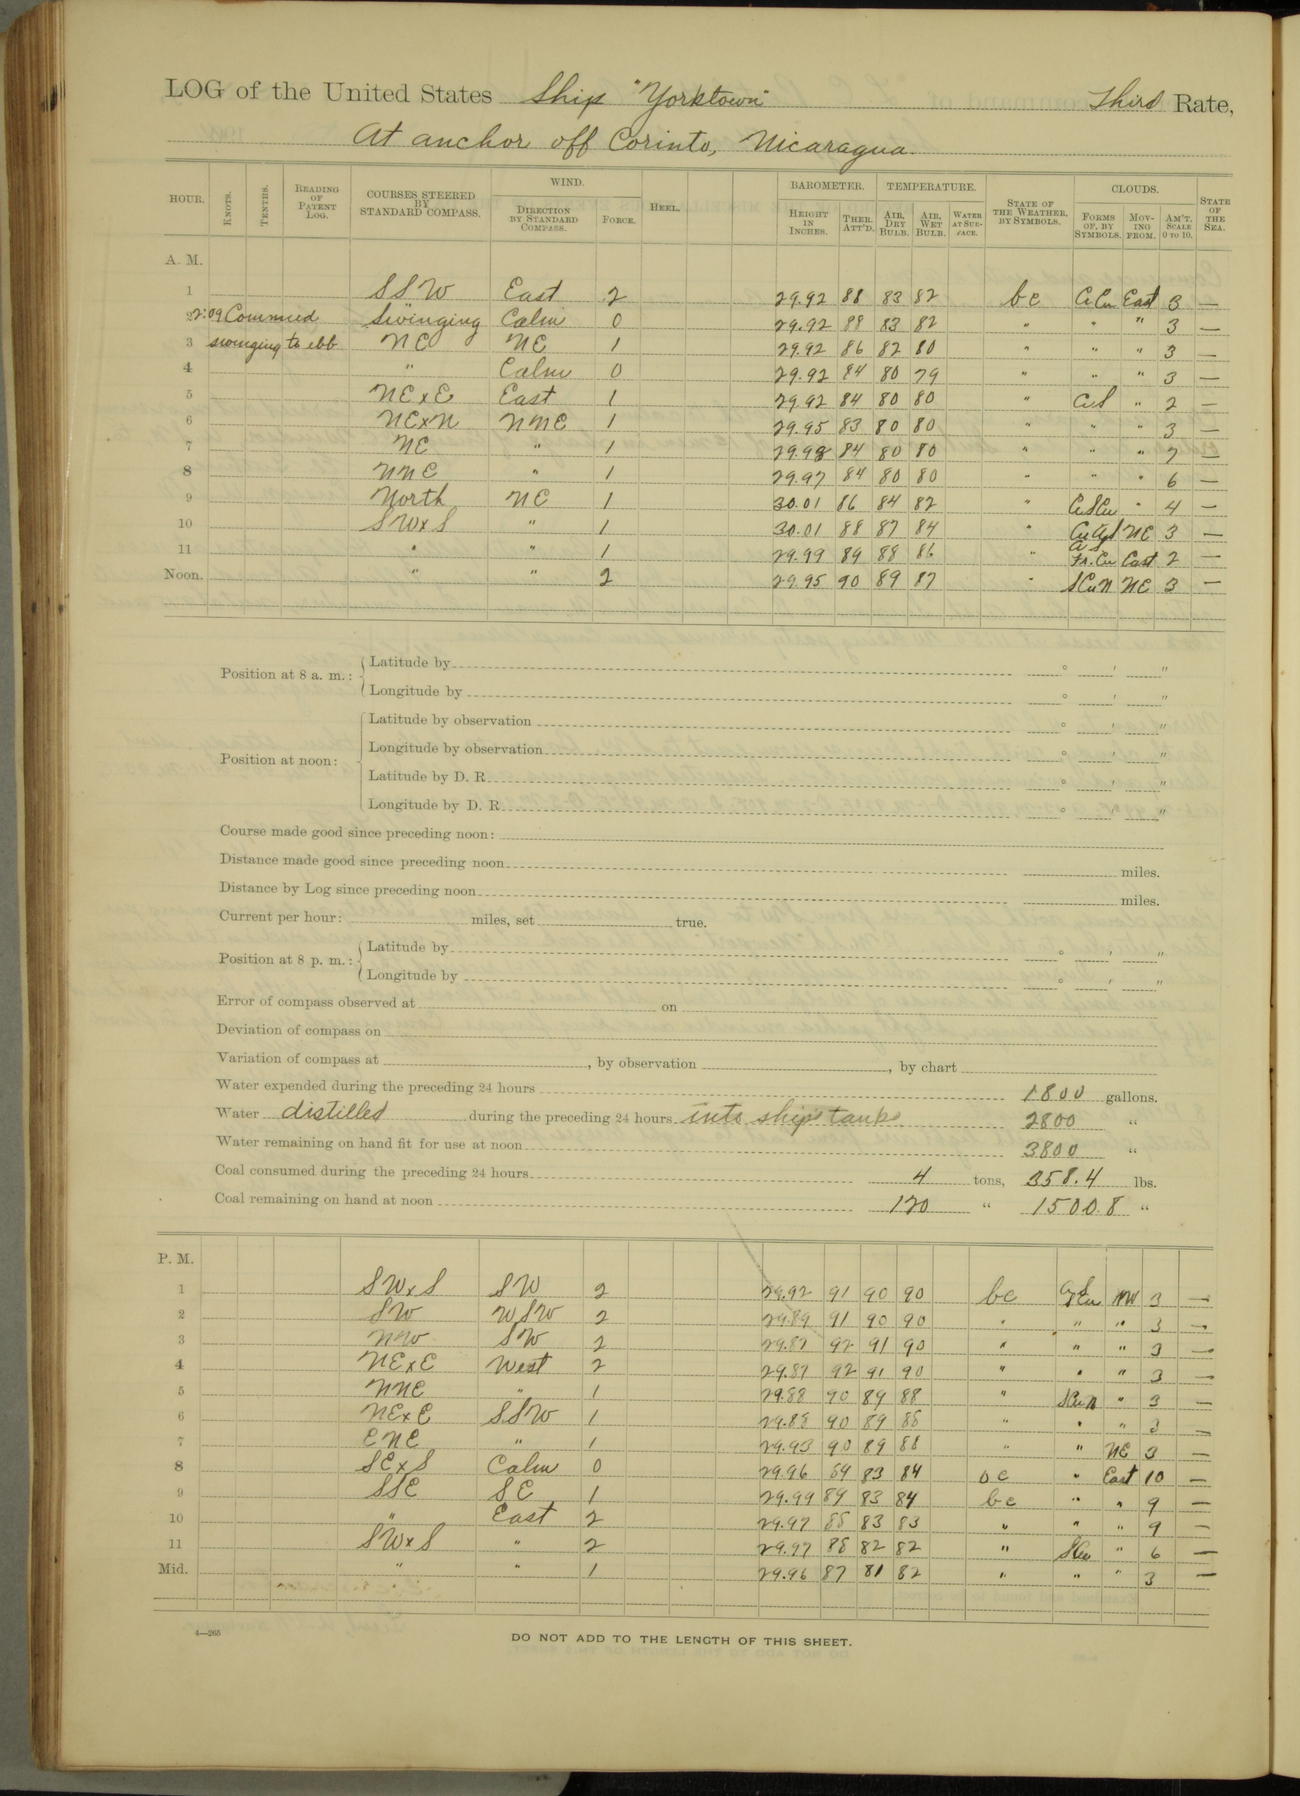 LOG of the United States Ship "Yorktown" Third Rate,
At anchor off Corinto, Nicaragua.
HOUR. KNOTS. TENTHS. READING OF PATENT LOG. COURSES STEERED BY STANDARD COMPASS. WIND. DIRECTION BY STANDARD COMPASS. FORCE. HEEL. BAROMETER. HEIGHT IN INCHES. THER. ATT'D. TEMPERATURE. AIR, DRY BULB. AIR, WET BULB. WATER AT SURFACE. STATE OF THE WEATHER, BY SYMBOLS. CLOUDS. FORMS OF, BY SYMBOLS. MOVING FROM. AM'T. SCALE 0 TO 10. STATE OF THE SEA.
A. M.
1 SSW East 2 29.92 88 83 82 bc Ci Cu East 3 —
2 2:09 Commced Swinging Calm 0 29.92 88 83 82 " " " 3 —
3 swinging to ebb NE NE 1 29.92 86 82 80 " " " 3 —
4 " Calm 0 29.92 84 80 79 " " " 3 —
5 NExE East 1 29.92 84 80 80 " CuS " 2 —
6 NExN NNE 1 29.95 83 80 80 " " " 3 —
7 NE " 1 29.98 84 80 80 " " " 7 —
8 NNE " 1 29.97 84 80 80 " " " 6 —
9 North NE 1 30.01 86 84 82 " Ci SCu " 4 —
10 SWxS " 1 30.01 88 87 84 " NE 3 —
11 " " 1 29.99 89 88 86 " Fr. Cu East 2 —
Noon. " " 2 29.95 90 89 87 " SCu N NE 3 —
Position at 8 a. m.: Latitude by ° ' "
Longitude by ° ' "
Position at noon: Latitude by observation ° ' "
Longitude by observation ° ' "
Latitude by D. R. ° ' "
Longitude by D. R. ° ' "
Course made good since preceding noon:
Distance made good since preceding noon miles.
Distance by Log since preceding noon miles.
Current per hour: miles, set true.
Position at 8 p. m.: Latitude by ° ' "
Longitude by ° ' "
Error of compass observed at on
Deviation of compass on
Variation of compass at , by observation , by chart
Water expended during the preceding 24 hours 1800 gallons.
Water distilled during the preceding 24 hours into ship's tanks 2800 "
Water remaining on hand fit for use at noon 3800 "
Coal consumed during the preceding 24 hours 4 tons, 358.4 lbs.
Coal remaining on hand at noon 120 " 1500.8 "
P. M.
1 SWxS SW 2 29.92 91 90 90 bc NW 3 —
2 SW WSW 2 29.89 91 90 90 " " " 3 —
3 NW SW 2 29.87 92 91 90 " " " 3 —
4 NExE West 2 29.87 92 91 90 " " " 3 —
5 NNE " 1 29.88 90 89 88 " SCu N " 3 —
6 NExE SSW 1 29.88 90 89 88 " " " 3 —
7 ENE " 1 29.93 90 89 88 " " NE 3 —
8 SExS Calm 0 29.96 89 83 84 oc " East 10 —
9 SSE SE 1 29.99 89 83 84 bc " " 9 —
10 " East 2 29.97 88 83 83 " " " 9 —
11 SWxS " 2 29.97 88 82 82 " SCu " 6 —
Mid. " " 1 29.96 87 81 82 " " " 3 —
4—265
DO NOT ADD TO THE LENGTH OF THIS SHEET.